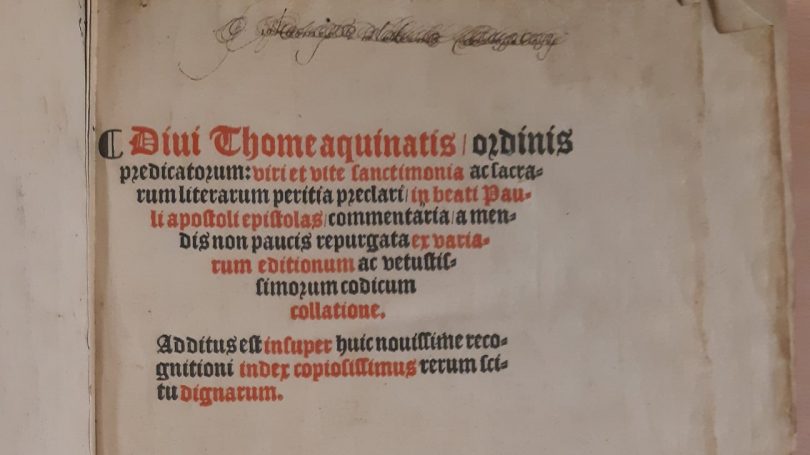 ❡ Diui Thome aquinatis / ordinis
predicatorum: viri et vite ſanctimonia ac ſacra-
rum literarum peritia preclari / in beati Pau-
li apoſtoli epiſtolas / commentaria / a men-
dis non paucis repurgata ex varia-
rum editionum ac vetuſtiſ-
ſimorum codicum
collatione.
Additus eſt inſuper huic nouiſſime reco-
gnitioni index copioſiſſimus rerum ſci-
tu dignarum.